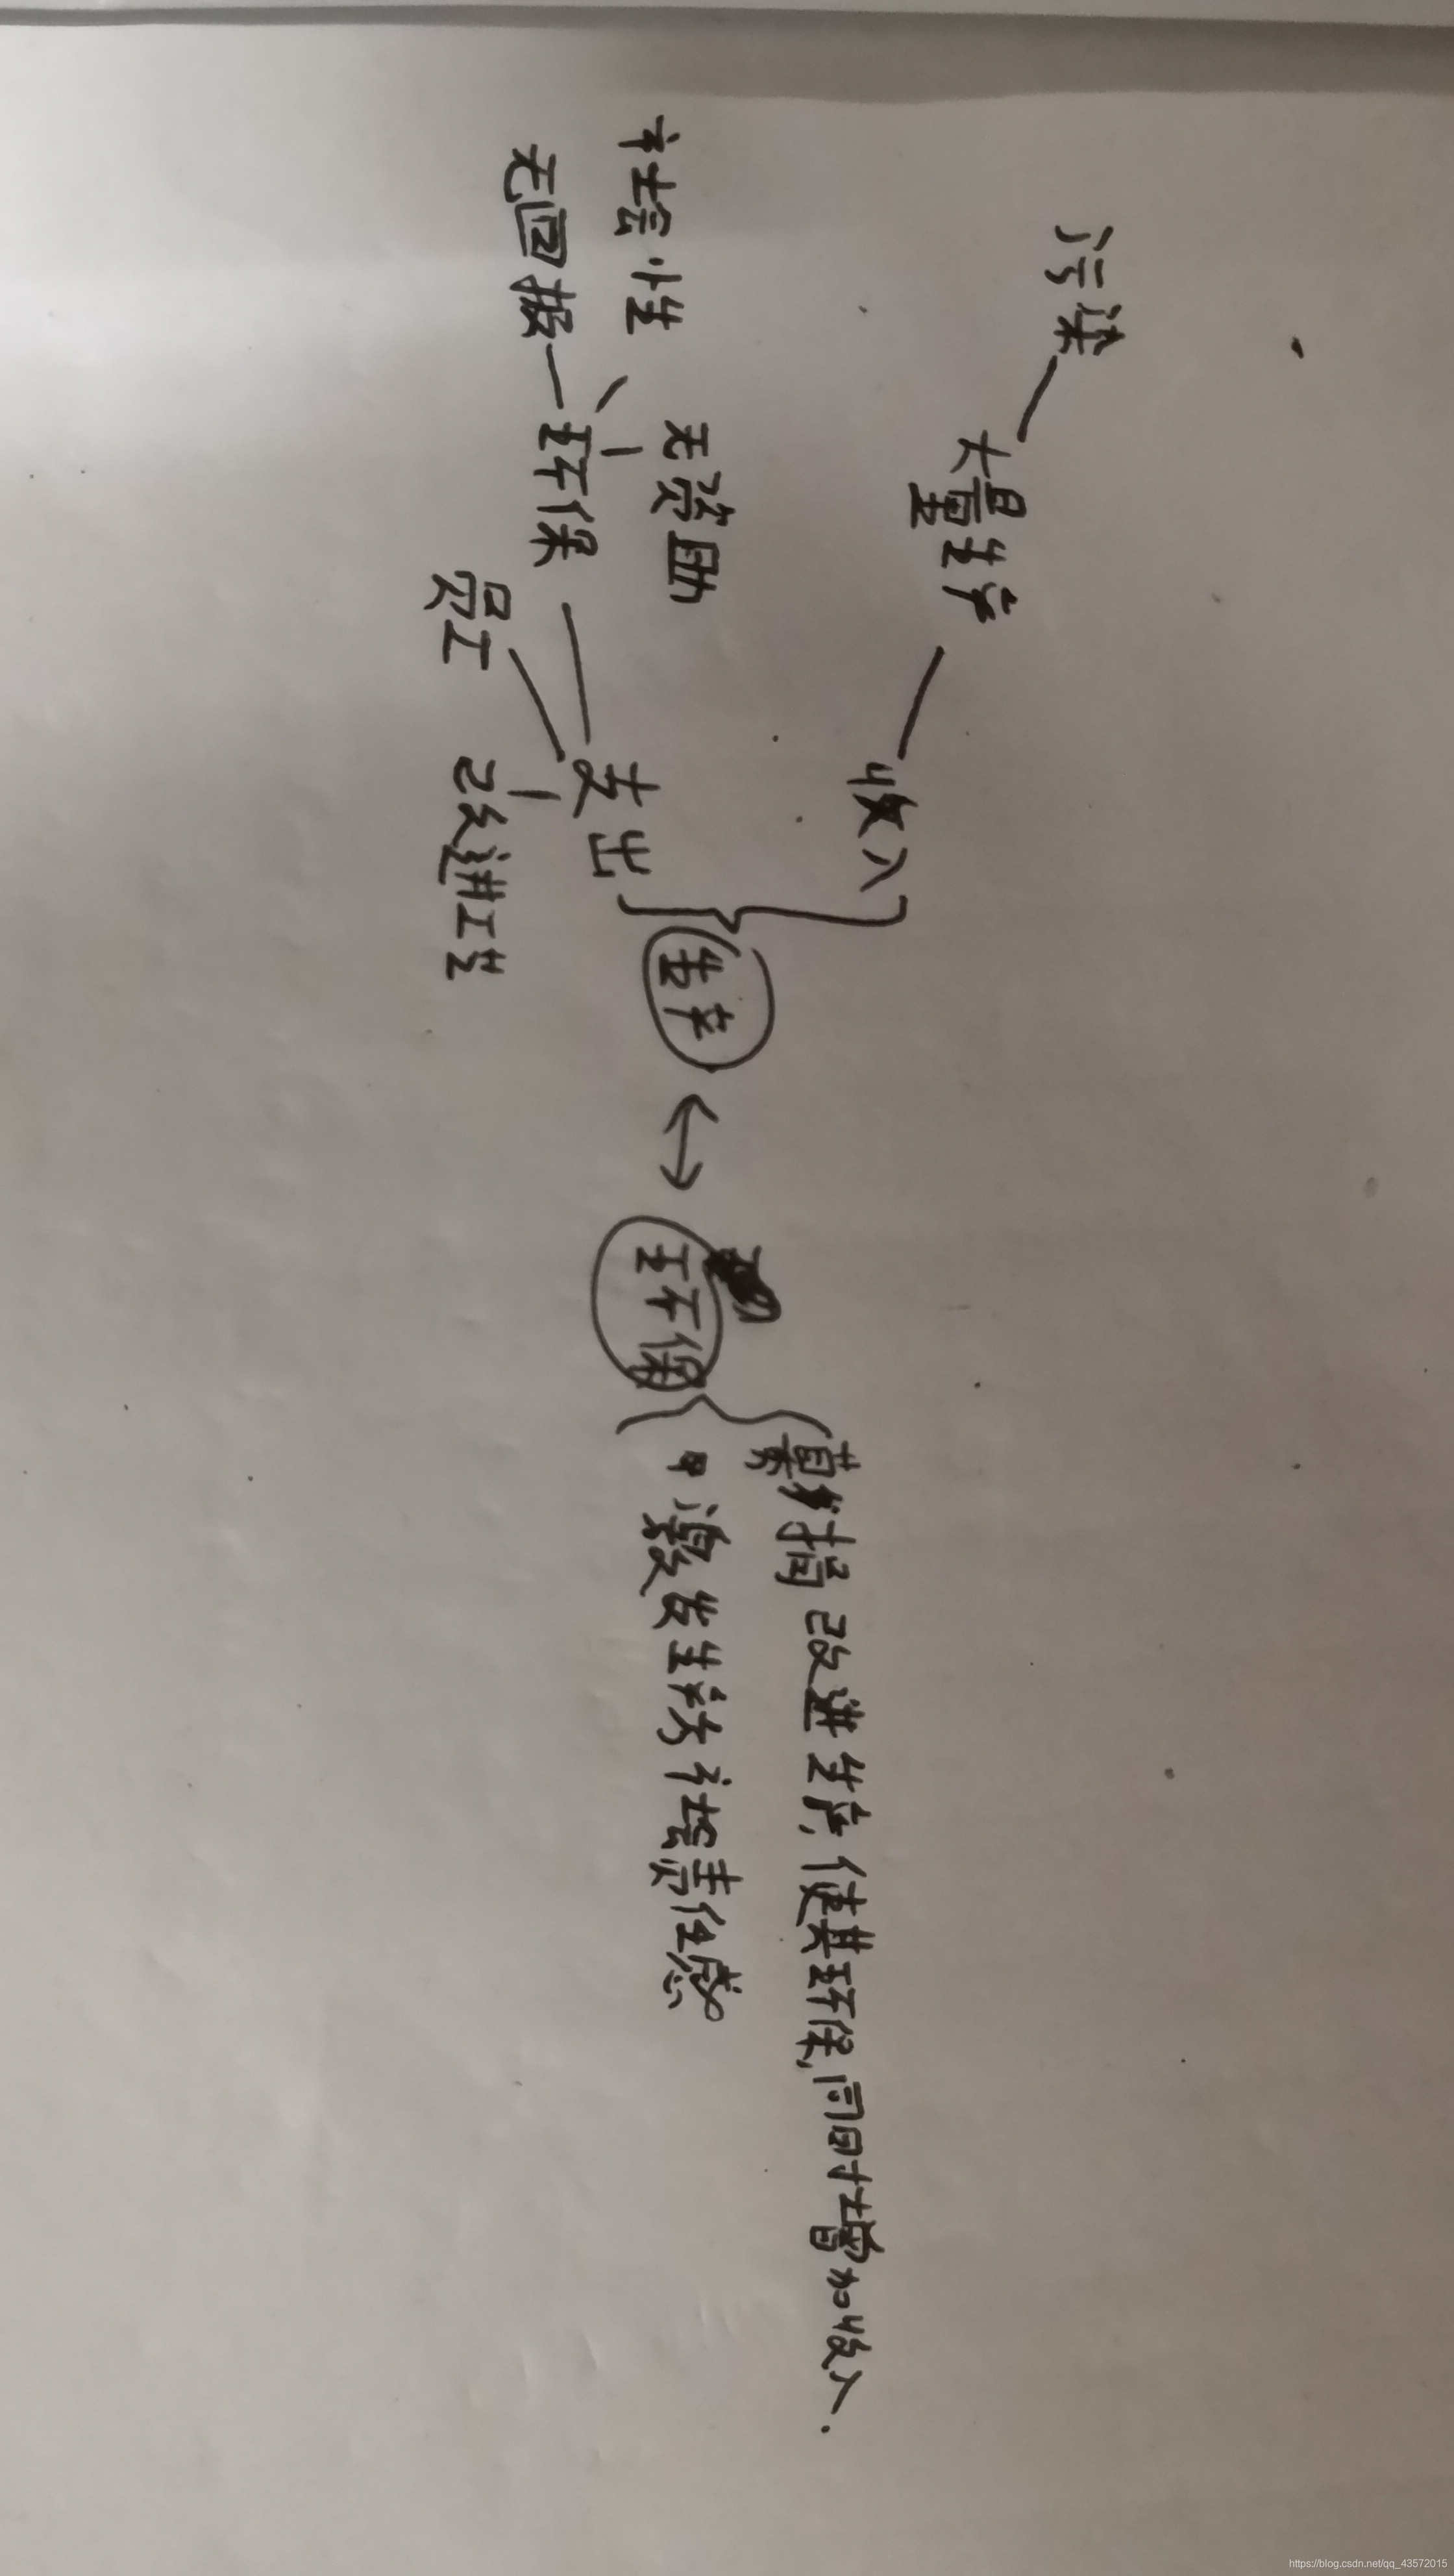 污染
大量生产
收入
社会性
无资助
无回报
环保
支出
员工
改进工艺
生产
环保
募捐 改进生产,使其环保,同时增加收入.
激发生活社会责任感
https://blog.csdn.net/qq_43572015